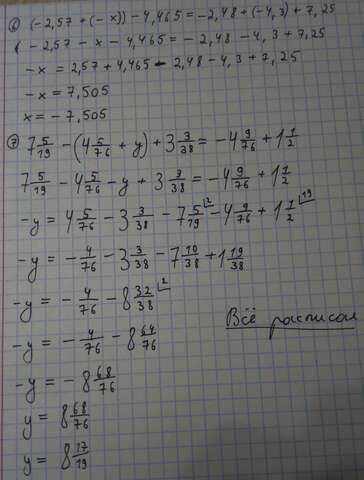 ⑥ (-2,57 + (-x)) - 4,465 = -2,48 + (-4,3) + 7,25
-2,57 - x - 4,465 = -2,48 - 4,3 + 7,25
-x = 2,57 + 4,465 - 2,48 - 4,3 + 7,25
-x = 7,505
x = -7,505
⑦ 7 5/19 - (4 5/76 + y) + 3 3/38 = -4 9/76 + 1 1/2
7 5/19 - 4 5/76 - y + 3 3/38 = -4 9/76 + 1 1/2
-y = 4 5/76 - 3 3/38 - 7 5/19 |2 - 4 9/76 + 1 1/2 |19
-y = -4/76 - 3 3/38 - 7 10/38 + 1 19/38
-y = -4/76 - 8 32/38 |2
Всё расписал
-y = -4/76 - 8 64/76
-y = -8 68/76
y = 8 68/76
y = 8 17/19